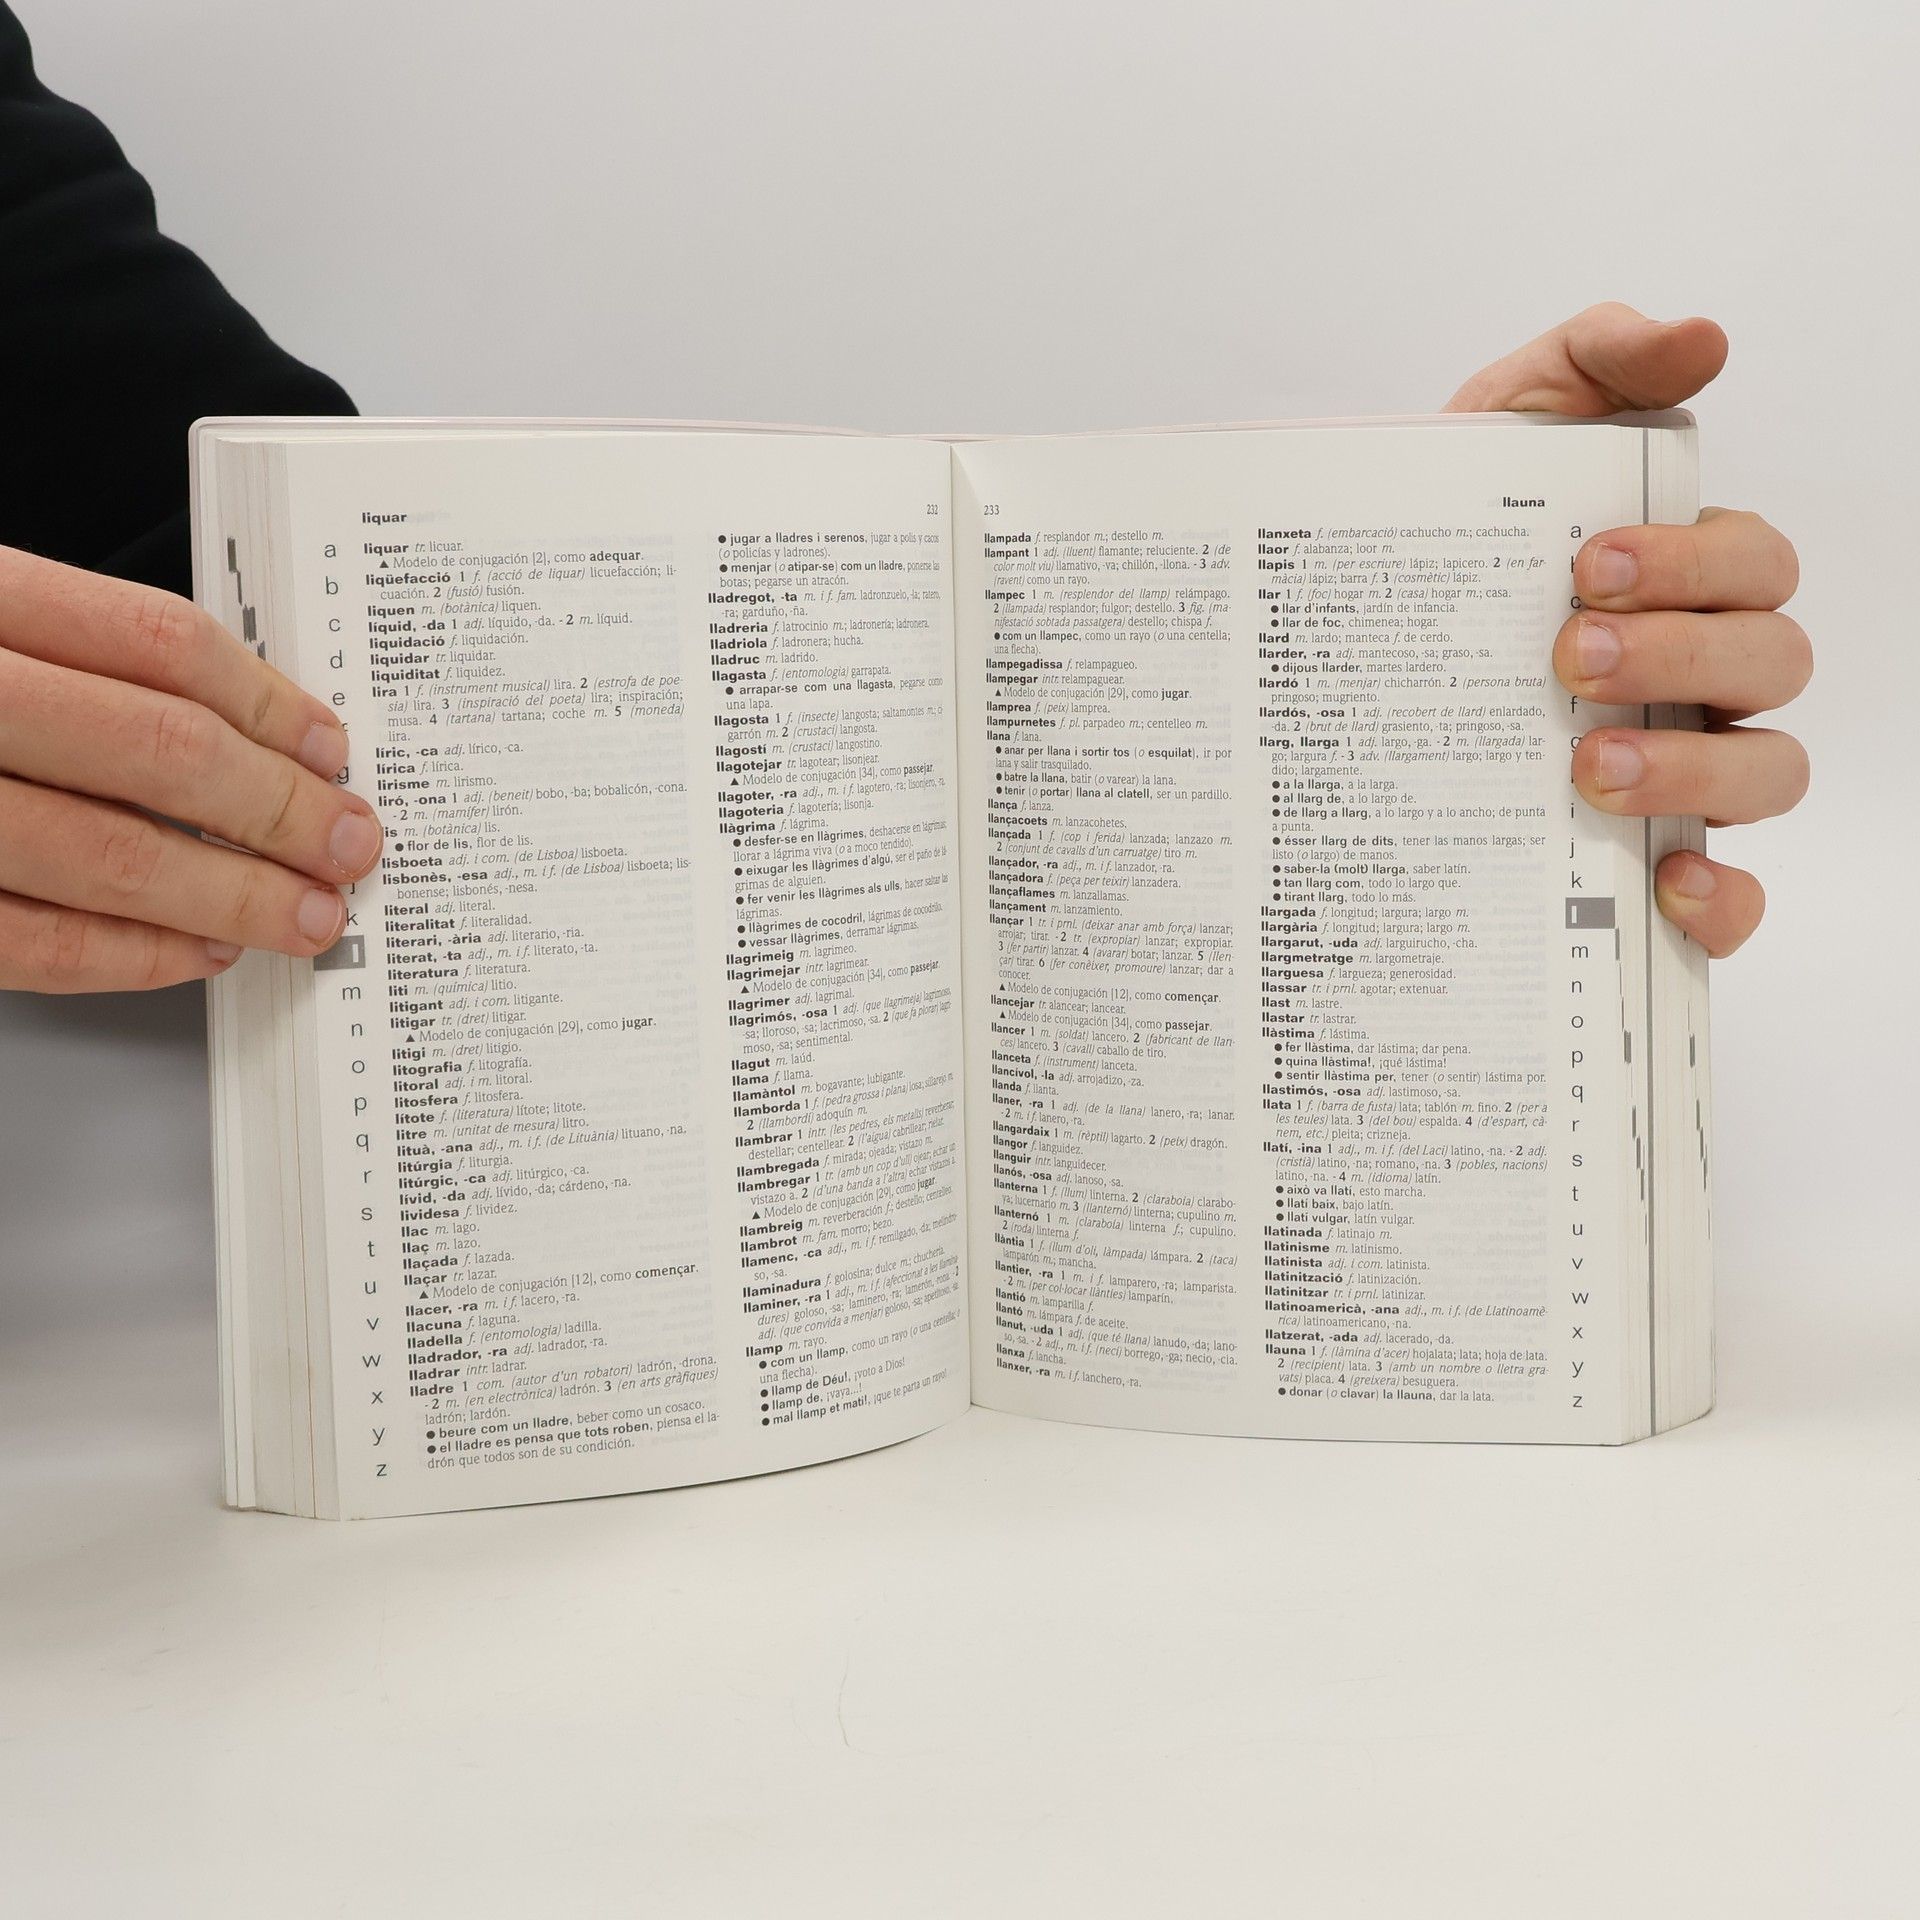 liquar
232
a
b
c
d
e
g
k
l
m
n
o
p
q
r
s
t
u
v
w
x
y
z
liquar tr. licuar.
▲ Modelo de conjugación [2], como adequar.
liqüefacció 1 f. (acció de liquar) licuefacción; li-
cuación. 2 (fusió) fusión.
liquen m. (botànica) liquen.
líquid, -da 1 adj. líquido, -da. - 2 m. líquid.
liquidació f. liquidación.
liquidar tr. liquidar.
liquiditat f. liquidez.
lira 1 f. (instrument musical) lira. 2 (estrofa de poe-
sia) lira. 3 (inspiració del poeta) lira; inspiración;
musa. 4 (tartana) tartana; coche m. 5 (moneda)
lira.
líric, -ca adj. lírico, -ca.
lírica f. lírica.
lirisme m. lirismo.
liró, -ona 1 adj. (beneit) bobo, -ba; bobalicón, -cona.
- 2 m. (mamífer) lirón.
lis m. (botànica) lis.
● flor de lis, flor de lis.
lisboeta adj. i com. (de Lisboa) lisboeta.
lisbonès, -esa adj., m. i f. (de Lisboa) lisboeta; lis-
bonense; lisbonés, -nesa.
literal adj. literal.
literalitat f. literalidad.
literari, -ària adj. literario, -ria.
literat, -ta adj., m. i f. literato, -ta.
literatura f. literatura.
liti m. (química) litio.
litigant adj. i com. litigante.
litigar tr. (dret) litigar.
▲ Modelo de conjugación [29], como jugar.
litigi m. (dret) litigio.
litografia f. litografía.
litoral adj. i m. litoral.
litosfera f. litosfera.
lítote f. (literatura) lítote; litote.
litre m. (unitat de mesura) litro.
lituà, -ana adj., m. i f. (de Lituània) lituano, -na.
litúrgia f. liturgia.
litúrgic, -ca adj. litúrgico, -ca.
lívid, -da adj. lívido, -da; cárdeno, -na.
lividesa f. lividez.
llac m. lago.
llaç m. lazo.
llaçada f. lazada.
llaçar tr. lazar.
▲ Modelo de conjugación [12], como començar.
llacer, -ra m. i f. lacero, -ra.
llacuna f. laguna.
lladella f. (entomologia) ladilla.
lladrador, -ra adj. ladrador, -ra.
lladrar intr. ladrar.
lladre 1 com. (autor d'un robatori) ladrón, -drona.
- 2 m. (en electrònica) ladrón. 3 (en arts gràfiques)
ladrón; lardón.
● beure com un lladre, beber como un cosaco.
● el lladre es pensa que tots roben, piensa el la-
drón que todos son de su condición.
● jugar a lladres i serenos, jugar a polis y cacos
(o policías y ladrones).
● menjar (o atipar-se) com un lladre, ponerse las
botas; pegarse un atracón.
lladregot, -ta m. i f. fam. ladronzuelo, -la; ratero,
-ra; garduño, -ña.
lladreria f. latrocinio m.; ladronería; ladronera.
lladriola f. ladronera; hucha.
lladruc m. ladrido.
llagasta f. (entomologia) garrapata.
● arrapar-se com una llagasta, pegarse como
una lapa.
llagosta 1 f. (insecte) langosta; saltamontes m.; ci-
garrón m. 2 (crustaci) langosta.
llagostí m. (crustaci) langostino.
llagotejar tr. lagotear; lisonjear.
▲ Modelo de conjugación [34], como passejar.
llagoter, -ra adj., m. i f. lagotero, -ra; lisonjero, -ra.
llagoteria f. lagotería; lisonja.
llàgrima f. lágrima.
● desfer-se en llàgrimes, deshacerse en lágrimas;
llorar a lágrima viva (o a moco tendido).
● eixugar les llàgrimes d'algú, ser el paño de lá-
grimas de alguien.
● fer venir les llàgrimes als ulls, hacer saltar las
lágrimas.
● llàgrimes de cocodril, lágrimas de cocodrilo.
● vessar llàgrimes, derramar lágrimas.
llagrimeig m. lagrimeo.
llagrimejar intr. lagrimear.
▲ Modelo de conjugación [34], como passejar.
llagrimer adj. lagrimal.
llagrimós, -osa 1 adj. (que llagrimeja) lagrimoso,
-sa; lloroso, -sa; lacrimoso, -sa. 2 (que fa plorar) lagri-
moso, -sa; sentimental.
llagut m. laúd.
llama f. llama.
llamàntol m. bogavante; lubigante.
llamborda 1 f. (pedra grossa i plana) losa; sillarejo m.
2 (llambordí) adoquín m.
llambrar 1 intr. (les pedres, els metalls) reverberar;
destellar; centellear. 2 (l'aigua) cabrillear; rielar.
llambregada f. mirada; ojeada; vistazo m.
llambregar 1 tr. (amb un cop d'ull) ojear; echar un
vistazo a. 2 (d'una banda a l'altra) echar vistazos a.
▲ Modelo de conjugación [29], como jugar.
llambreig m. reverberación f.; destello; centelleo.
llambrot m. fam. morro; bezo.
llamenc, -ca adj., m. i f. remilgado, -da; melindro-
so, -sa.
llaminadura f. golosina; dulce m.; chuchería.
llaminer, -ra 1 adj., m. i f. (afeccionat a les llamina-
dures) goloso, -sa; laminero, -ra; lamerón, -rona. - 2
adj. (que convida a menjar) goloso, -sa; apetitoso, -sa.
llamp m. rayo.
● com un llamp, como un rayo (o una centella; o
una flecha).
● llamp de Déu!, ¡voto a Dios!
● llamp de, ¡vaya...!
● mal llamp et mati!, ¡que te parta un rayo!
233
llauna
llampada f. resplandor m.; destello m.
llampant 1 adj. (lluent) flamante; reluciente. 2 (de
color molt viu) llamativo, -va; chillón, -llona. - 3 adv.
(ravent) como un rayo.
llampec 1 m. (resplendor del llamp) relámpago.
2 (llampada) resplandor; fulgor; destello. 3 fig. (ma-
nifestació sobtada passatgera) destello; chispa f.
● com un llampec, como un rayo (o una centella;
una flecha).
llampegadissa f. relampagueo.
llampegar intr. relampaguear.
▲ Modelo de conjugación [29], como jugar.
llamprea f. (peix) lamprea.
llampurnetes f. pl. parpadeo m.; centelleo m.
llana f. lana.
● anar per llana i sortir tos (o esquilat), ir por
lana y salir trasquilado.
● batre la llana, batir (o varear) la lana.
● tenir (o portar) llana al clatell, ser un pardillo.
llança f. lanza.
llançacoets m. lanzacohetes.
llançada 1 f. (cop i ferida) lanzada; lanzazo m.
2 (conjunt de cavalls d'un carruatge) tiro m.
llançador, -ra adj., m. i f. lanzador, -ra.
llançadora f. (peça per teixir) lanzadera.
llançaflames m. lanzallamas.
llançament m. lanzamiento.
llançar 1 tr. i prnl. (deixar anar amb força) lanzar;
arrojar; tirar. - 2 tr. (expropiar) lanzar; expropiar.
3 (fer partir) lanzar. 4 (avarar) botar; lanzar. 5 (llen-
çar) tirar. 6 (fer conèixer, promoure) lanzar; dar a
conocer.
▲ Modelo de conjugación [12], como començar.
llancejar tr. alancear; lancear.
▲ Modelo de conjugación [34], como passejar.
llancer 1 m. (soldat) lancero. 2 (fabricant de llan-
ces) lancero. 3 (cavall) caballo de tiro.
llanceta f. (instrument) lanceta.
llancívol, -la adj. arrojadizo, -za.
llanda f. llanta.
llaner, -ra 1 adj. (de la llana) lanero, -ra; lanar.
- 2 m. i f. lanero, -ra.
llangardaix 1 m. (rèptil) lagarto. 2 (peix) dragón.
llangor f. languidez.
llanguir intr. languidecer.
llanós, -osa adj. lanoso, -sa.
llanterna 1 f. (llum) linterna. 2 (claraboia) clarabo-
ya; lucernario m. 3 (llanternó) linterna; cupulino m.
llanternó 1 m. (claraboia) linterna f.; cupulino.
2 (roda) linterna f.
llàntia 1 f. (llum d'oli, làmpada) lámpara. 2 (taca)
lamparón m.; mancha.
llantier, -ra 1 m. i f. lamparero, -ra; lamparista.
- 2 m. (per col·locar llànties) lamparín.
llantió m. lamparilla f.
llantó m. lámpara f. de aceite.
llanut, -uda 1 adj. (que té llana) lanudo, -da; lano-
so, -sa. - 2 adj., m. i f. (neci) borrego, -ga; necio, -cia.
llanxa f. lancha.
llanxer, -ra m. i f. lanchero, -ra.
llanxeta f. (embarcació) cachucho m.; cachucha.
llaor f. alabanza; loor m.
llapis 1 m. (per escriure) lápiz; lapicero. 2 (en far-
màcia) lápiz; barra f. 3 (cosmètic) lápiz.
llar 1 f. (foc) hogar m. 2 (casa) hogar m.; casa.
● llar d'infants, jardín de infancia.
● llar de foc, chimenea; hogar.
llard m. lardo; manteca f. de cerdo.
llarder, -ra adj. mantecoso, -sa; graso, -sa.
● dijous llarder, martes lardero.
llardó 1 m. (menjar) chicharrón. 2 (persona bruta)
pringoso; mugriento.
llardós, -osa 1 adj. (recobert de llard) enlardado,
-da. 2 (brut de llard) grasiento, -ta; pringoso, -sa.
llarg, llarga 1 adj. largo, -ga. - 2 m. (llargada) lar-
go; largura f. - 3 adv. (llargament) largo; largo y ten-
dido; largamente.
● a la llarga, a la larga.
● al llarg de, a lo largo de.
● de llarg a llarg, a lo largo y a lo ancho; de punta
a punta.
● ésser llarg de dits, tener las manos largas; ser
listo (o largo) de manos.
● saber-la (molt) llarga, saber latín.
● tan llarg com, todo lo largo que.
● tirant llarg, todo lo más.
llargada f. longitud; largura; largo m.
llargària f. longitud; largura; largo m.
llargarut, -uda adj. larguirucho, -cha.
llargmetratge m. largometraje.
llarguesa f. largueza; generosidad.
llassar tr. i prnl. agotar; extenuar.
llast m. lastre.
llastar tr. lastrar.
llàstima f. lástima.
● fer llàstima, dar lástima; dar pena.
● quina llàstima!, ¡qué lástima!
● sentir llàstima per, tener (o sentir) lástima por.
llastimós, -osa adj. lastimoso, -sa.
llata 1 f. (barra de fusta) lata; tablón m. fino. 2 (per a
les teules) lata. 3 (del bou) espalda. 4 (d'espart, cà-
nem, etc.) pleita; crizneja.
llatí, -ina 1 adj., m. i f. (del Laci) latino, -na. - 2 adj.
(cristià) latino, -na; romano, -na. 3 (pobles, nacions)
latino, -na. - 4 m. (idioma) latín.
● això va llatí, esto marcha.
● llatí baix, bajo latín.
● llatí vulgar, latín vulgar.
llatinada f. latinajo m.
llatinisme m. latinismo.
llatinista adj. i com. latinista.
llatinització f. latinización.
llatinitzar tr. i prnl. latinizar.
llatinoamericà, -ana adj., m. i f. (de Llatinoamè-
rica) latinoamericano, -na.
llatzerat, -ada adj. lacerado, -da.
llauna 1 f. (làmina d'acer) hojalata; lata; hoja de lata.
2 (recipient) lata. 3 (amb un nombre o lletra gra-
vats) placa. 4 (greixera) besuguera.
● donar (o clavar) la llauna, dar la lata.
a
c
f
i
j
k
l
m
n
o
p
q
r
s
t
u
v
w
x
y
z